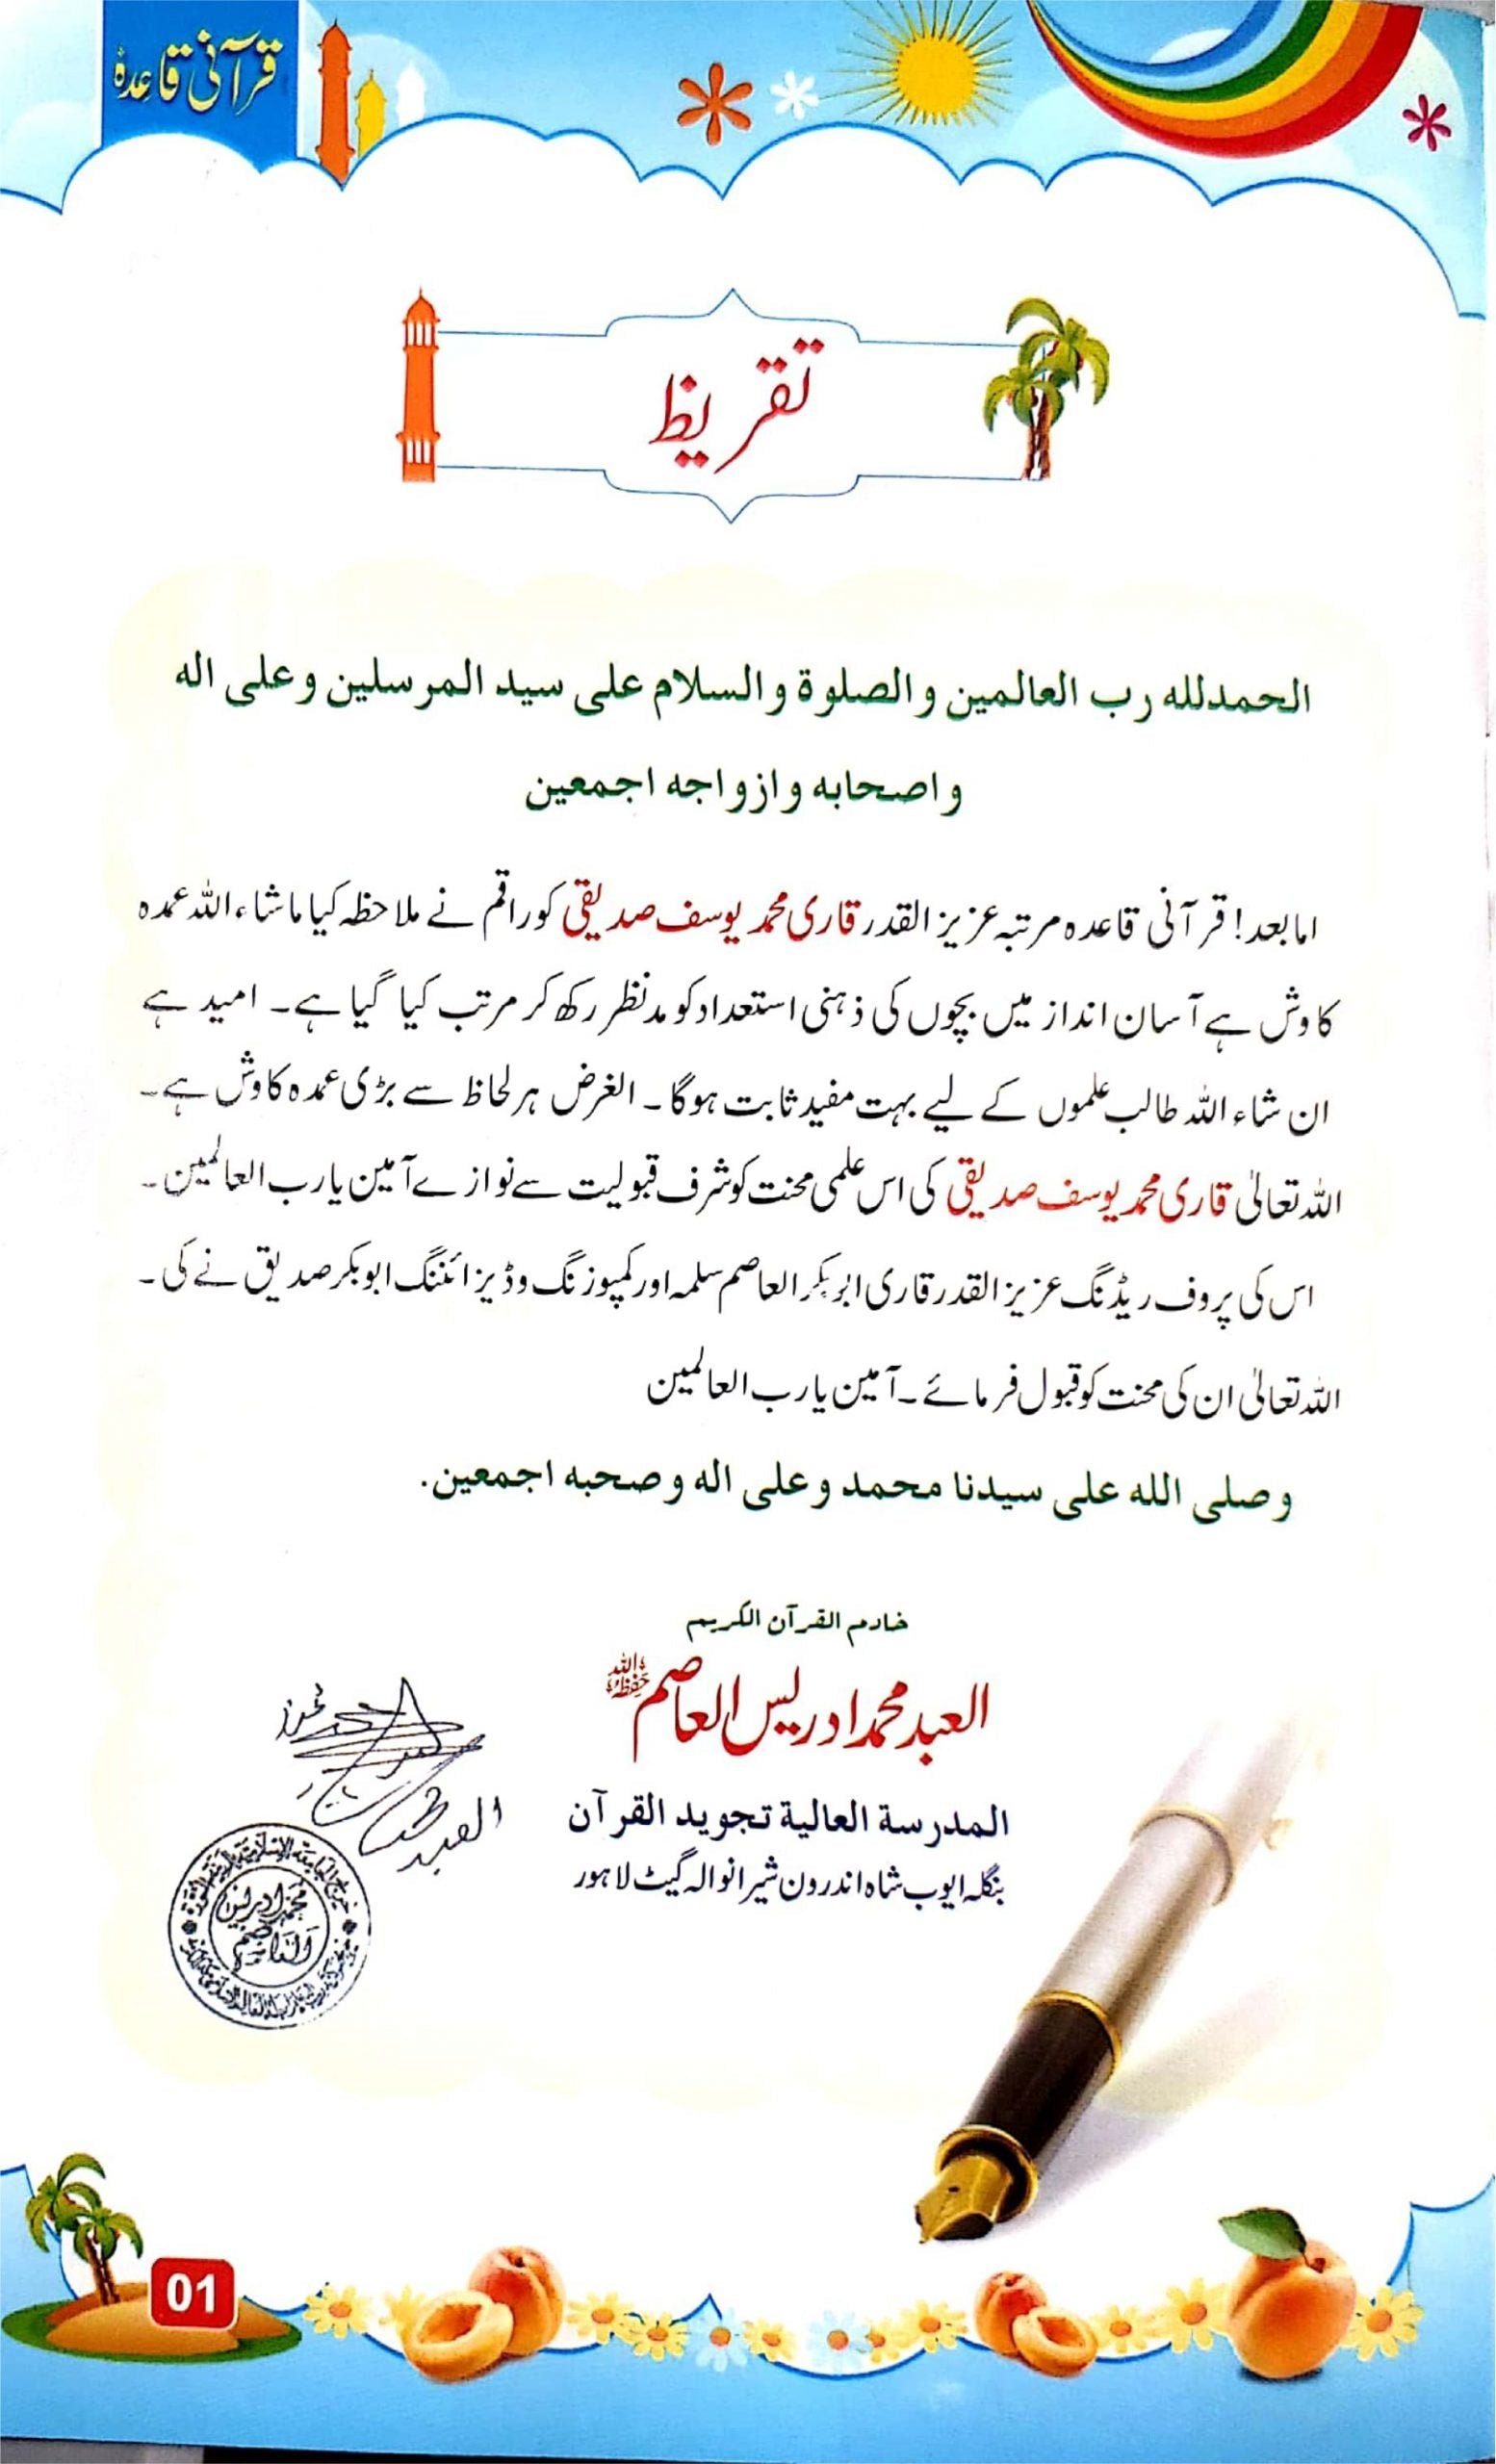 قرآنی قاعِدہ
تقریظ
الحمدلله رب العالمين والصلوة والسلام على سيد المرسلين وعلى اله
واصحابه وازواجه اجمعين
امابعد! قرآنی قاعدہ مرتبہ عزیز القدر قاری محمد یوسف صدیقی کو راقم نے ملاحظہ کیا ماشاء اللہ عمدہ
کاوش ہے آسان انداز میں بچوں کی ذہنی استعداد کو مدنظر رکھ کر مرتب کیا گیا ہے۔ امید ہے
ان شاء اللہ طالب علموں کے لیے بہت مفید ثابت ہوگا۔ الغرض ہر لحاظ سے بڑی عمدہ کاوش ہے۔
اللہ تعالیٰ قاری محمد یوسف صدیقی کی اس علمی محنت کو شرف قبولیت سے نوازے آمین یارب العالمین۔
اس کی پروف ریڈنگ عزیز القدر قاری ابوبکر العاصم سلمہ اور کمپوزنگ و ڈیزائننگ ابوبکر صدیق نے کی۔
اللہ تعالیٰ ان کی محنت کو قبول فرمائے۔ آمین یارب العالمین
وصلى الله على سيدنا محمد وعلى اله وصحبه اجمعين.
خادم القرآن الکریم
العبد محمد ادریس العاصم حفظہ اللہ
المدرسة العالية تجويد القرآن
بنگلہ ایوب شاہ اندرون شیرانوالہ گیٹ لاہور
العبد
محمد ادریس
العاصم
01